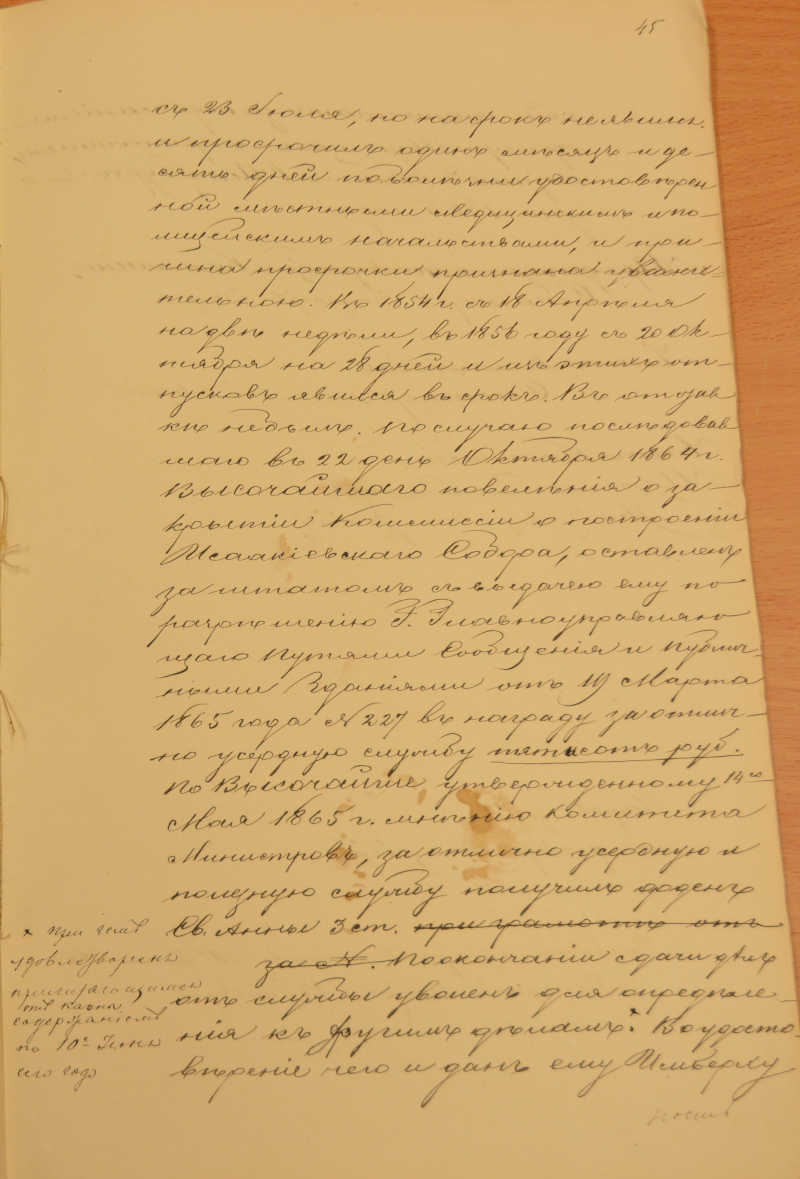 45
съ 23 Іюля, но на срокъ не явился
и просрочилъ одинъ мѣсяцъ и де-
сять дней по болѣзни удостовѣрен
ной мѣстными медицинскимъ и по-
лицейскимъ начальствами, и при-
чина просрочки признана уважи-
тельною. Въ 1854 г. съ 18 Апрѣля
на двѣ недѣли, въ 1856 году съ 20 Ок-
тября на 28 дней и изъ этихъ от-
пусковъ явился въ срокъ. Въ отстав
кѣ небылъ. По случаю послѣдовав
шаго въ 22 день Октября 1864 г.
Высочайшаго повелѣнія о за-
крытіи Коммиссіи о построеніи
Исаакіевскаго Собора, оставленъ
за штатомъ съ выдачею ему по
разрѣшенію Г. Главноуправляю
щаго Путями Сообщенія и Публич-
ными Зданіями отъ 19 Марта
1865 года № 227 въ награду за отлич-
но усердную службу пятисотъ руб.
По Высочайше утвержденному 14го
Мая 1865 г. мнѣнію Комитета
Министровъ, за отлично усердную и
полезную службу получилъ орденъ
Св. Анны 3 ст. при грамотѣ отъ
за №. По окончаніи сдачи дѣлъ
отъ службы уволенъ для опредѣле-
нія къ другимъ дѣламъ.* Въ удосто-
вѣреніе чего и данъ ему Имберху
* при чемъ
удовлетворенъ
причитающимся
отъ казны
содержаніемъ
по 10е Іюня
сего года